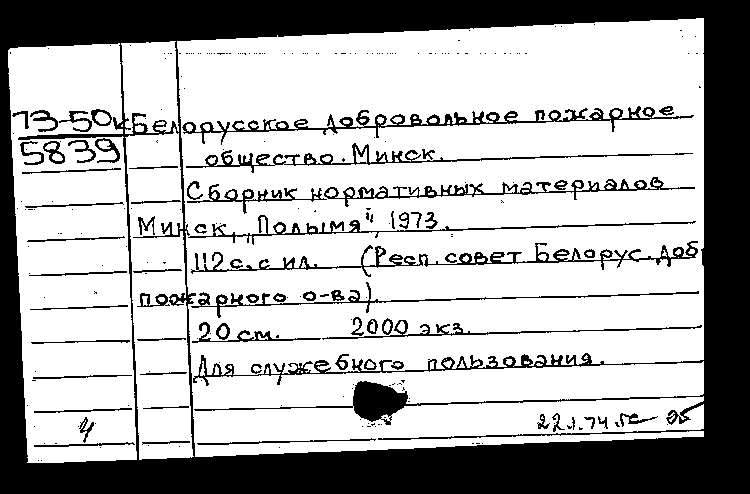 73-50к Белорусское добровольное пожарное
5839 общество. Минск.
Сборник нормативных материалов
Минск, „Полымя", 1973.
112 с. с ил. (Респ. совет Белорус. добр
пожарного о-ва).
20 см. 2000 экз.
Для служебного пользования.
4 22.1.74